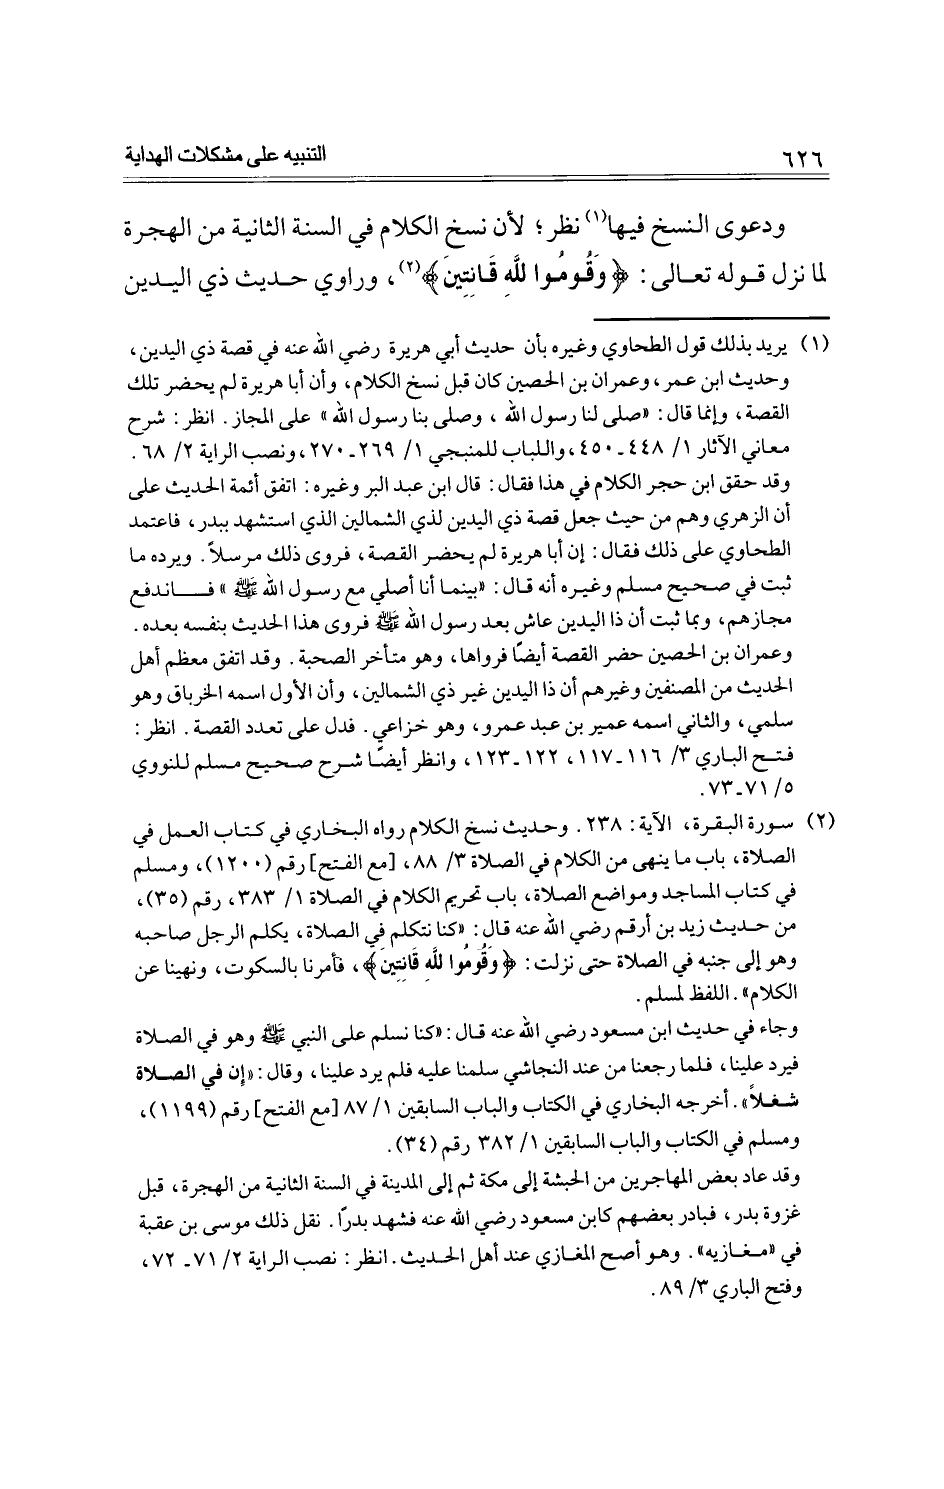 ٦٢٦ التنبيه على مشكلات الهداية
ودعوى النسخ فيها(١) نظر؛ لأن نسخ الكلام في السنة الثانية من الهجرة
لما نزل قوله تعالى: ﴿وَقُومُوا لِلَّهِ قَانِتِينَ﴾(٢)، وراوي حديث ذي اليدين
(١) يريد بذلك قول الطحاوي وغيره بأن حديث أبي هريرة رضي الله عنه في قصة ذي اليدين،
وحديث ابن عمر، وعمران بن الحصين كان قبل نسخ الكلام، وأن أبا هريرة لم يحضر تلك
القصة، وإنما قال: «صلى لنا رسول الله، وصلى بنا رسول الله» على المجاز. انظر: شرح
معاني الآثار ١/ ٤٤٨ـ٤٥٠، واللباب للمنبجي ١/ ٢٦٩ـ٢٧٠، ونصب الراية ٢/ ٦٨.
وقد حقق ابن حجر الكلام في هذا فقال: قال ابن عبد البر وغيره: اتفق أئمة الحديث على
أن الزهري وهم من حيث جعل قصة ذي اليدين لذي الشمالين الذي استشهد ببدر، فاعتمد
الطحاوي على ذلك فقال: إن أبا هريرة لم يحضر القصة، فروى ذلك مرسلاً. ويرده ما
ثبت في صحيح مسلم وغيره أنه قال: «بينما أنا أصلي مع رسول الله ﷺ» فـاندفع
مجازهم، وبما ثبت أن ذا اليدين عاش بعد رسول الله ﷺ فروى هذا الحديث بنفسه بعده.
وعمران بن الحصين حضر القصة أيضًا فرواها، وهو متأخر الصحبة. وقد اتفق معظم أهل
الحديث من المصنفين وغيرهم أن ذا اليدين غير ذي الشمالين، وأن الأول اسمه الخرباق وهو
سلمي، والثاني اسمه عمير بن عبد عمرو، وهو خزاعي. فدل على تعدد القصة. انظر:
فتح الباري ٣/ ١١٦ـ١١٧، ١٢٢ـ١٢٣، وانظر أيضًا شرح صحيح مسلم للنووي
٥/ ٧١ـ٧٣.
(٢) سورة البقرة، الآية: ٢٣٨. وحديث نسخ الكلام رواه البخاري في كتاب العمل في
الصلاة، باب ما ينهى من الكلام في الصلاة ٣/ ٨٨، [مع الفتح] رقم (١٢٠٠)، ومسلم
في كتاب المساجد ومواضع الصلاة، باب تحريم الكلام في الصلاة ١/ ٣٨٣، رقم (٣٥)،
من حديث زيد بن أرقم رضي الله عنه قال: «كنا نتكلم في الصلاة، يكلم الرجل صاحبه
وهو إلى جنبه في الصلاة حتى نزلت: ﴿وَقُومُوا لِلَّهِ قَانِتِينَ﴾، فأمرنا بالسكوت، ونهينا عن
الكلام». اللفظ لمسلم.
وجاء في حديث ابن مسعود رضي الله عنه قال: «كنا نسلم على النبي ﷺ وهو في الصلاة
فيرد علينا، فلما رجعنا من عند النجاشي سلمنا عليه فلم يرد علينا، وقال: «إن في الصلاة
شغلاً». أخرجه البخاري في الكتاب والباب السابقين ١/ ٨٧ [مع الفتح] رقم (١١٩٩)،
ومسلم في الكتاب والباب السابقين ١/ ٣٨٢ رقم (٣٤).
وقد عاد بعض المهاجرين من الحبشة إلى مكة ثم إلى المدينة في السنة الثانية من الهجرة، قبل
غزوة بدر، فبادر بعضهم كابن مسعود رضي الله عنه فشهد بدرًا. نقل ذلك موسى بن عقبة
في «مغازيه». وهو أصح المغازي عند أهل الحديث. انظر: نصب الراية ٢/ ٧١ـ ٧٢،
وفتح الباري ٣/ ٨٩.